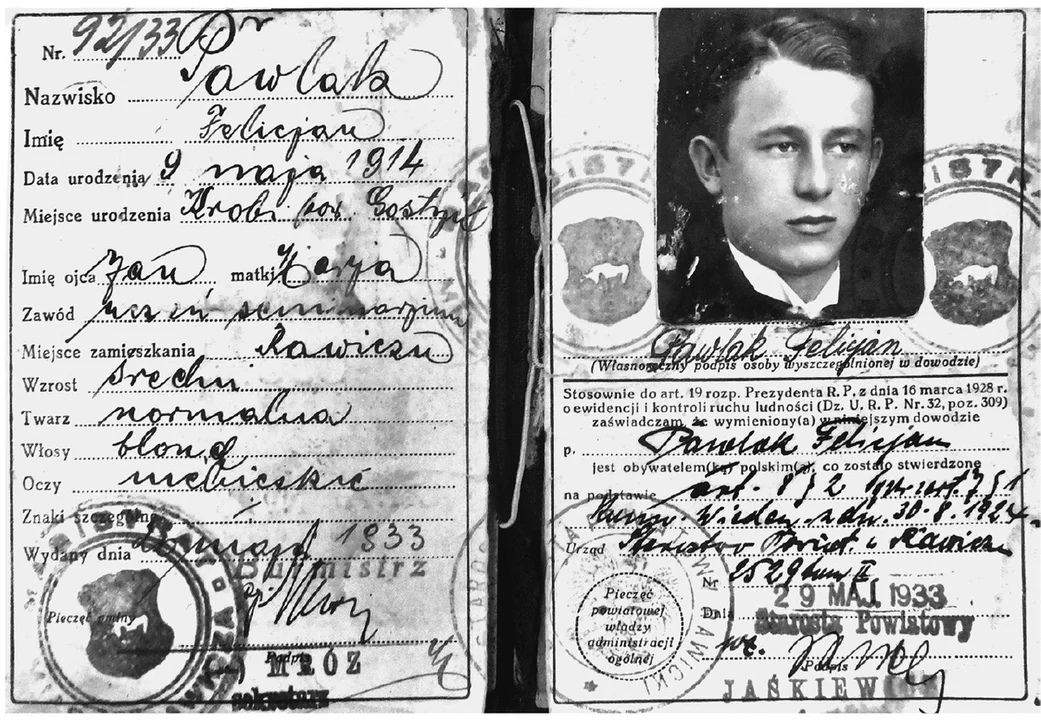 Nr. 92/33
Nazwisko Pawlak
Imię Felicjan
Data urodzenia 9 maja 1914
Miejsce urodzenia
Imię ojca Jan matki Marja
Zawód uczeń seminarzium
Miejsce zamieszkania Rawiczu
Wzrost średni
Twarz normalna
Włosy blond
Oczy niebieskie
Znaki szczególne
Wydany dnia 1933
Burmistrz
Pieczęć gminy
Podpis
MRÓZ
sekretarz
Pawlak Felicjan
(Własnoręczny podpis osoby wyszczególnionej w dowodzie)
Stosownie do art. 19 rozp. Prezydenta R. P. z dnia 16 marca 1928 r.
o ewidencji i kontroli ruchu ludności (Dz. U. R. P. Nr. 32, poz. 309)
zaświadczam, że wymieniony(a) w niniejszym dowodzie
p. Pawlak Felicjan
jest obywatelem(ką) polskim(ą), co zostało stwierdzone
na podstawie art.
30. 8. 1924
Urząd Starostwo Powiat. w Rawiczu
Nr 2529
Dnia 29 MAJ. 1933
Starosta Powiatowy
Pieczęć
powiatowej
władzy
administracji
ogólnej
Podpis